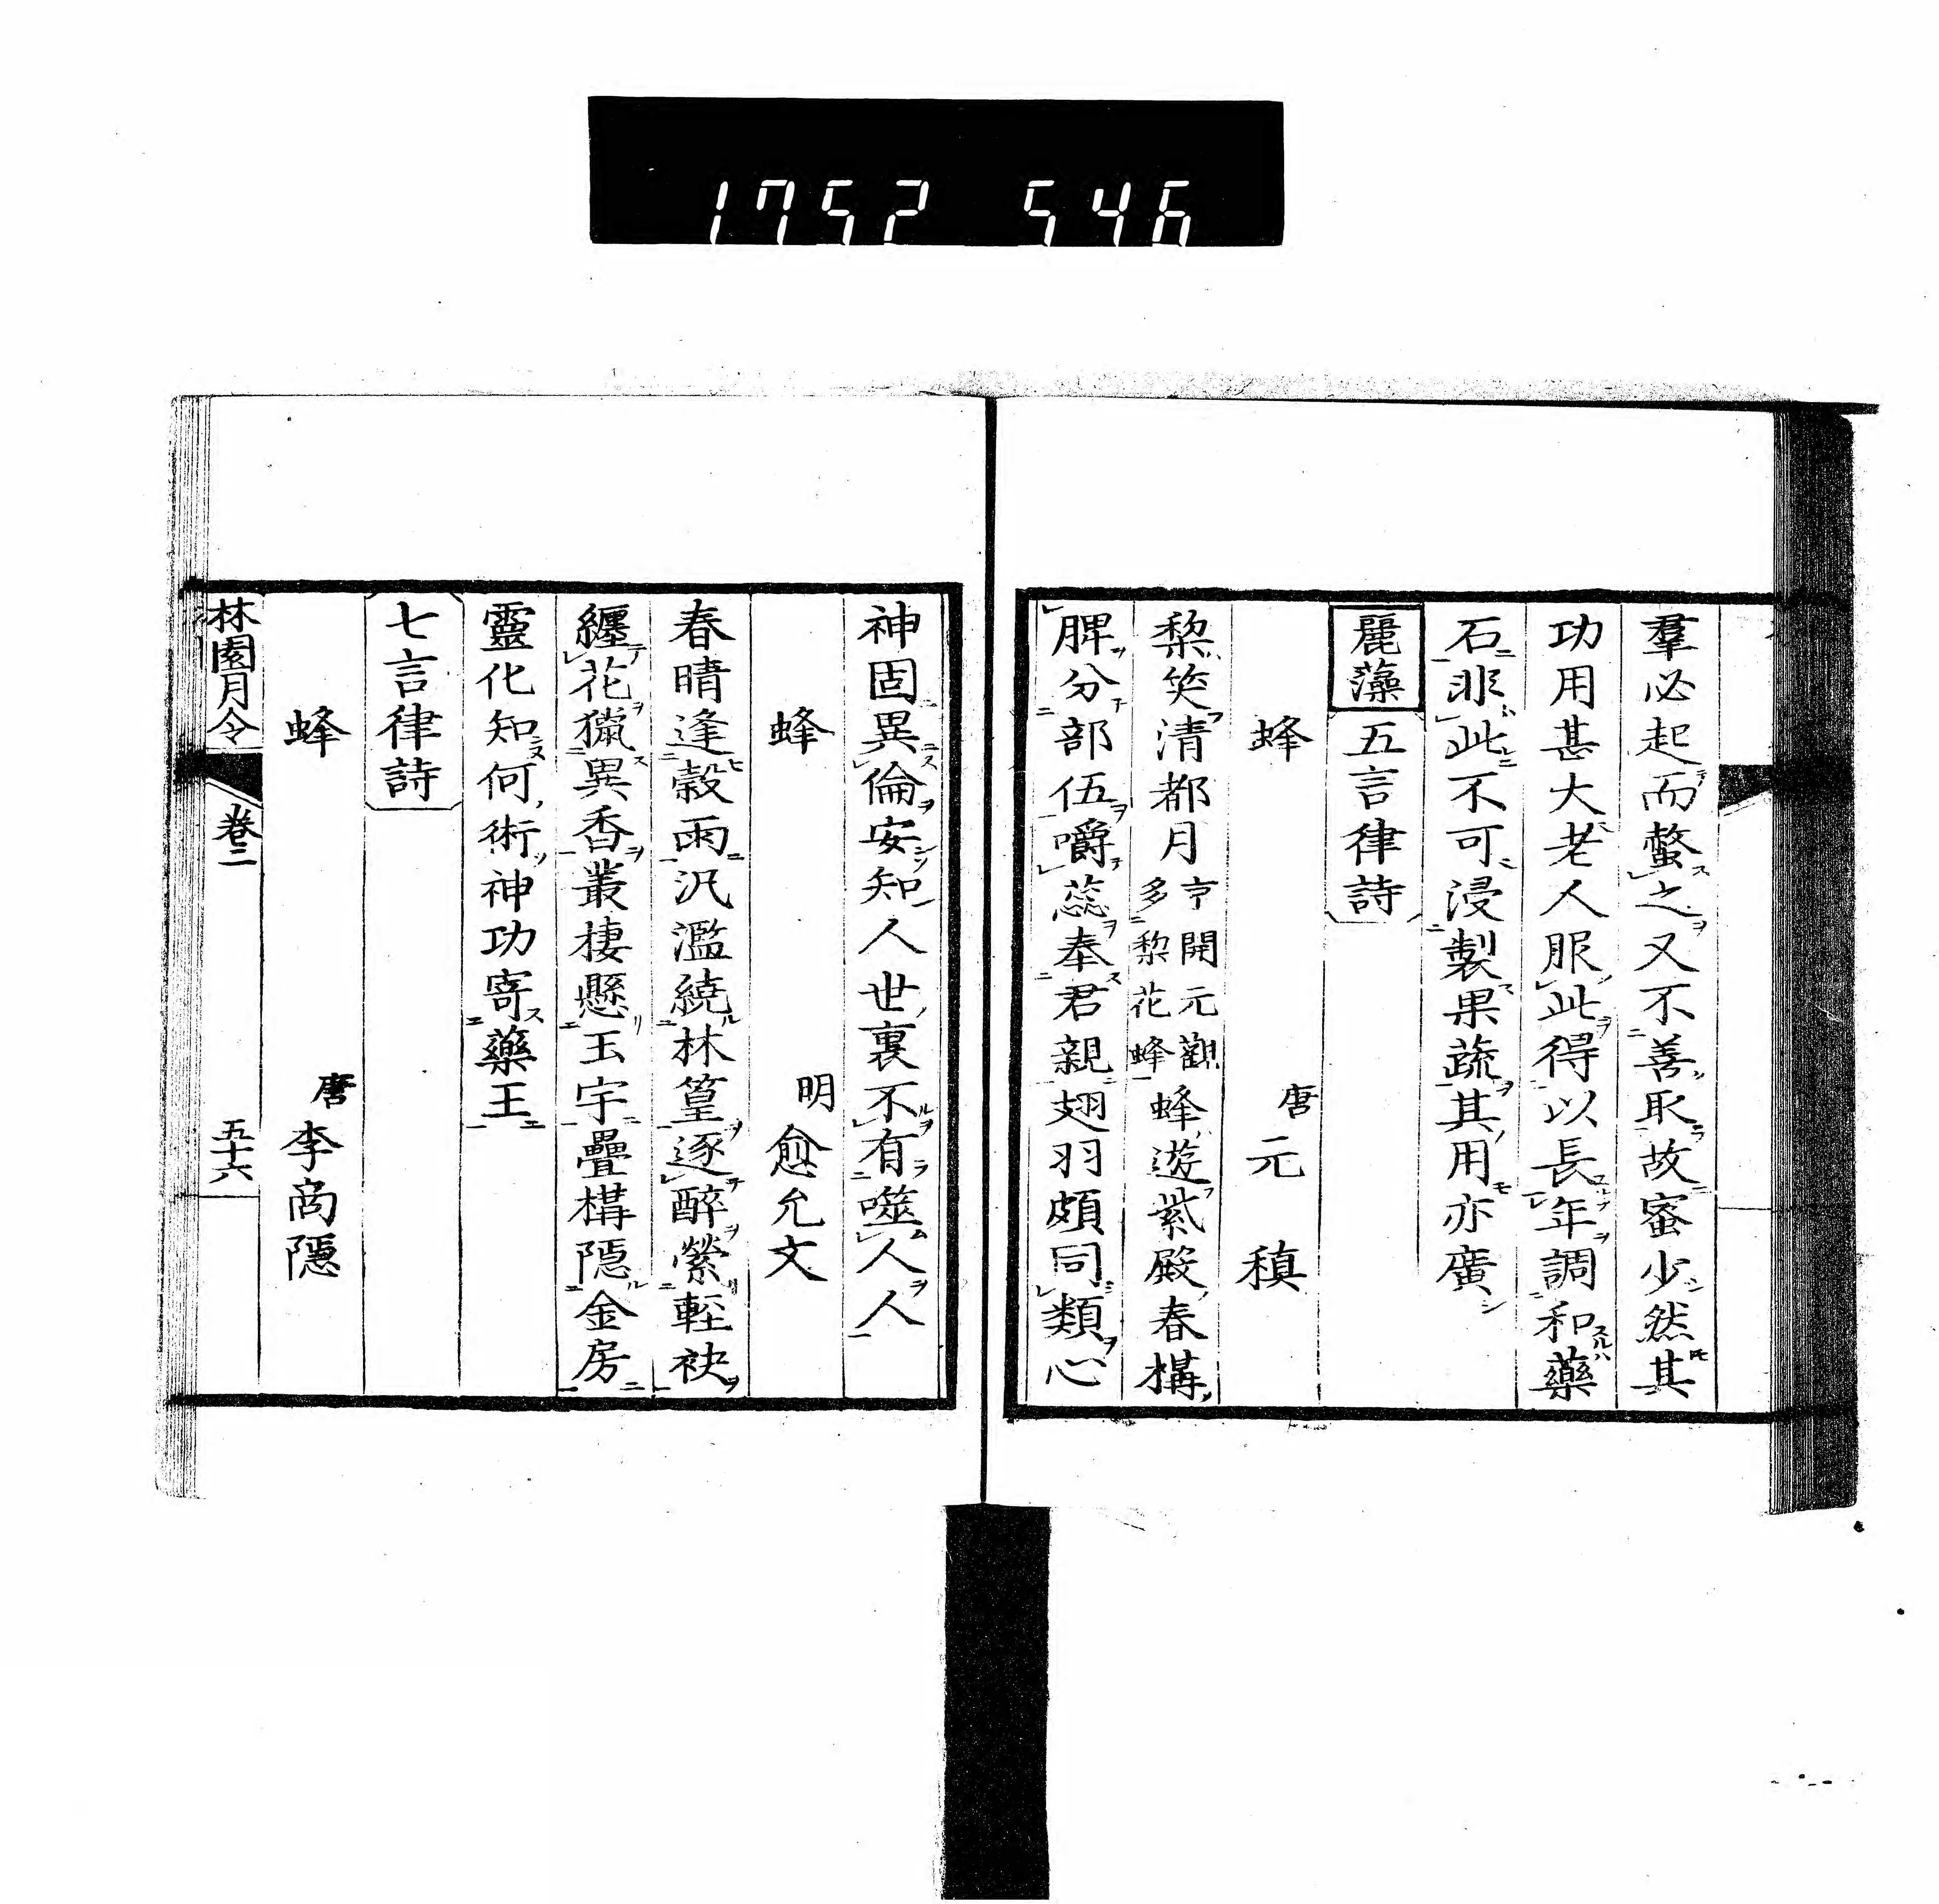 1752 546
羣必起而螫之又不善取故蜜少然其
功用甚大老人服此得以長年調和藥
石非此不可浸製果蔬其用亦廣
麗藻 五言律詩
蜂 唐 元稹
梨笑清都月 亨開元觀多梨花蜂 蜂遊紫殿春構
脾分部伍嚼蕊奉君親翅羽頗同類心
神固異倫安知人世裏不有噬人人
蜂 明 愈允文
春晴逢穀雨汎濫繞林篁逐醉縈輕袂
纏花獵異香叢棲懸玉宇疊構隠金房
靈化知何術神功寄藥王
七言律詩
蜂 唐 李商隠
林園月令 卷二 五十六